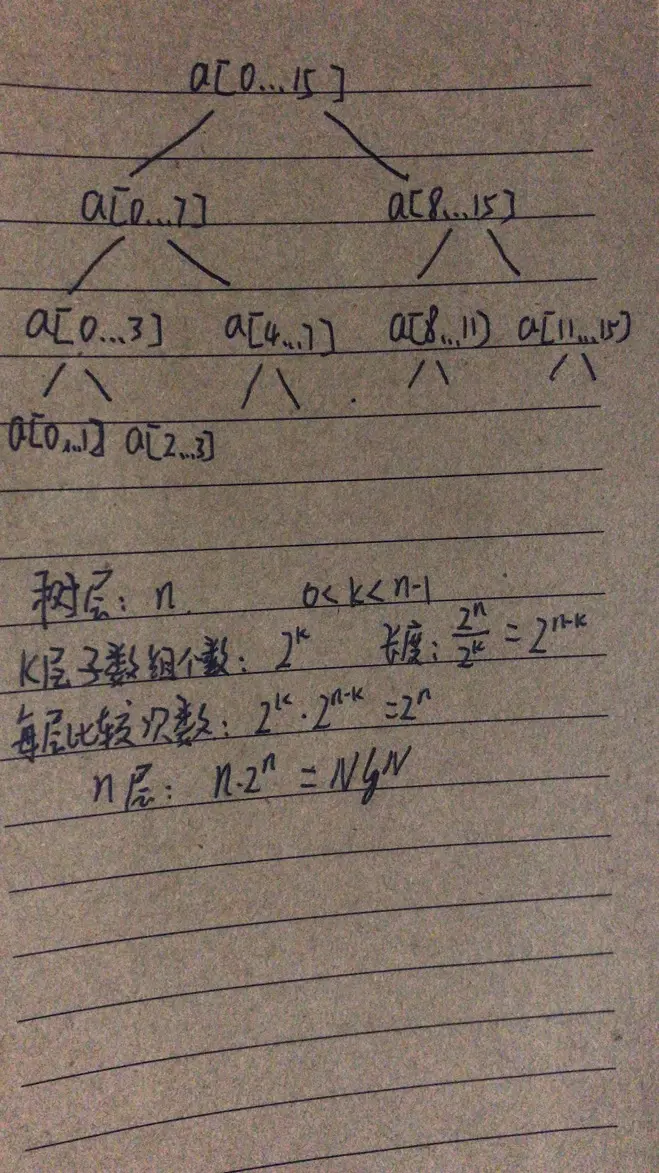 a[0...15]
a[0...7] a[8...15]
a[0...3] a[4...7] a[8...11) a[11...15)
a[0...1] a[2...3]
树层: n. 0<k<n-1
K层子数组个数: 2^k 长度: 2^n/2^k = 2^(n-k)
每层比较次数: 2^k · 2^(n-k) = 2^n
n层: n·2^n = NlgN